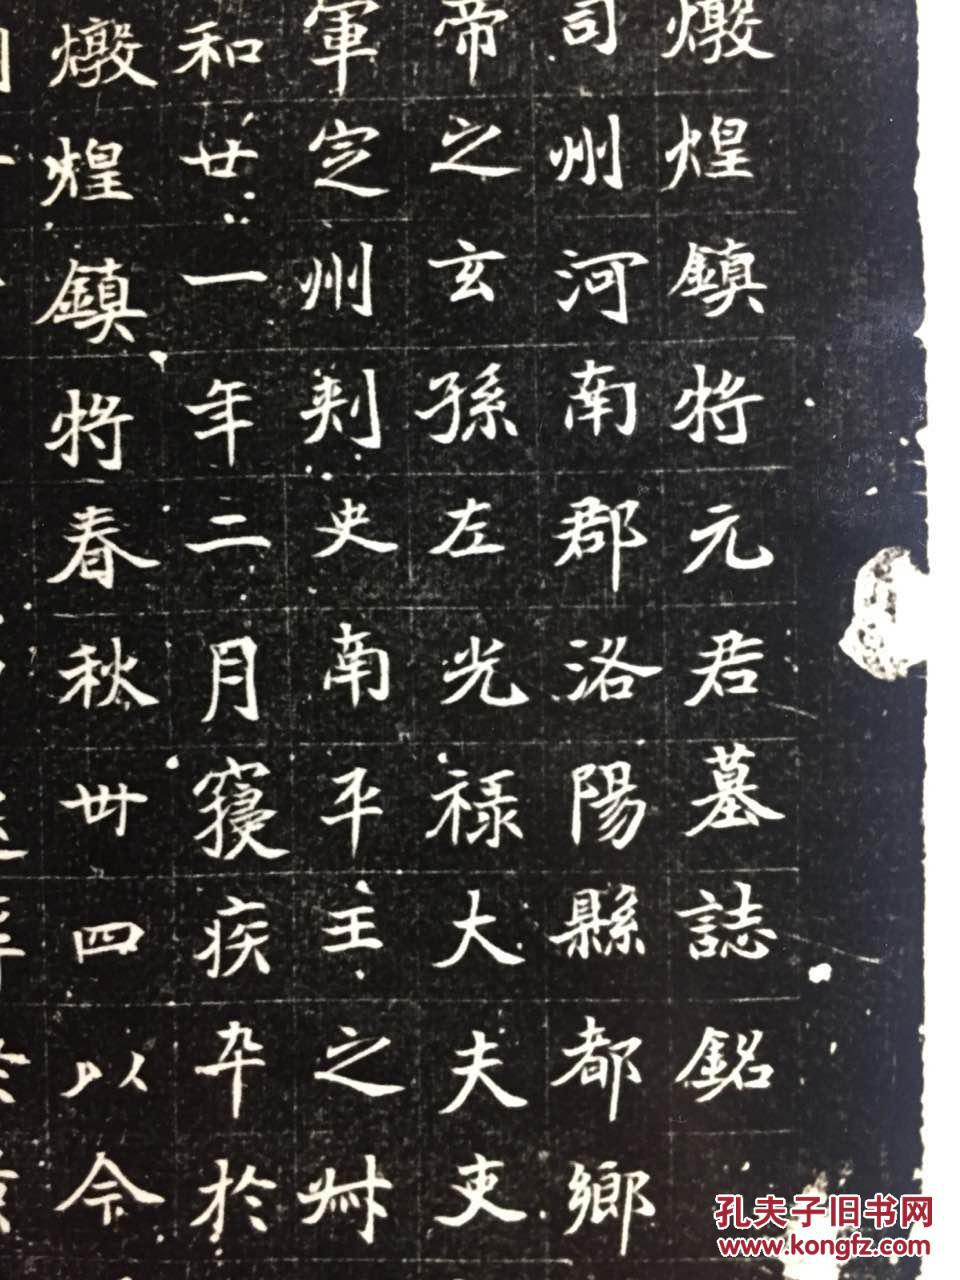 燉煌鎮將元君墓誌銘
司州河南郡洛陽縣都鄉
帝之玄孫左光祿大夫吏
軍定州刺史南平王之叔
和廿一年二月寢疾卒於
燉煌鎮將春秋卌四以令
孔夫子旧书网
www.kongfz.com